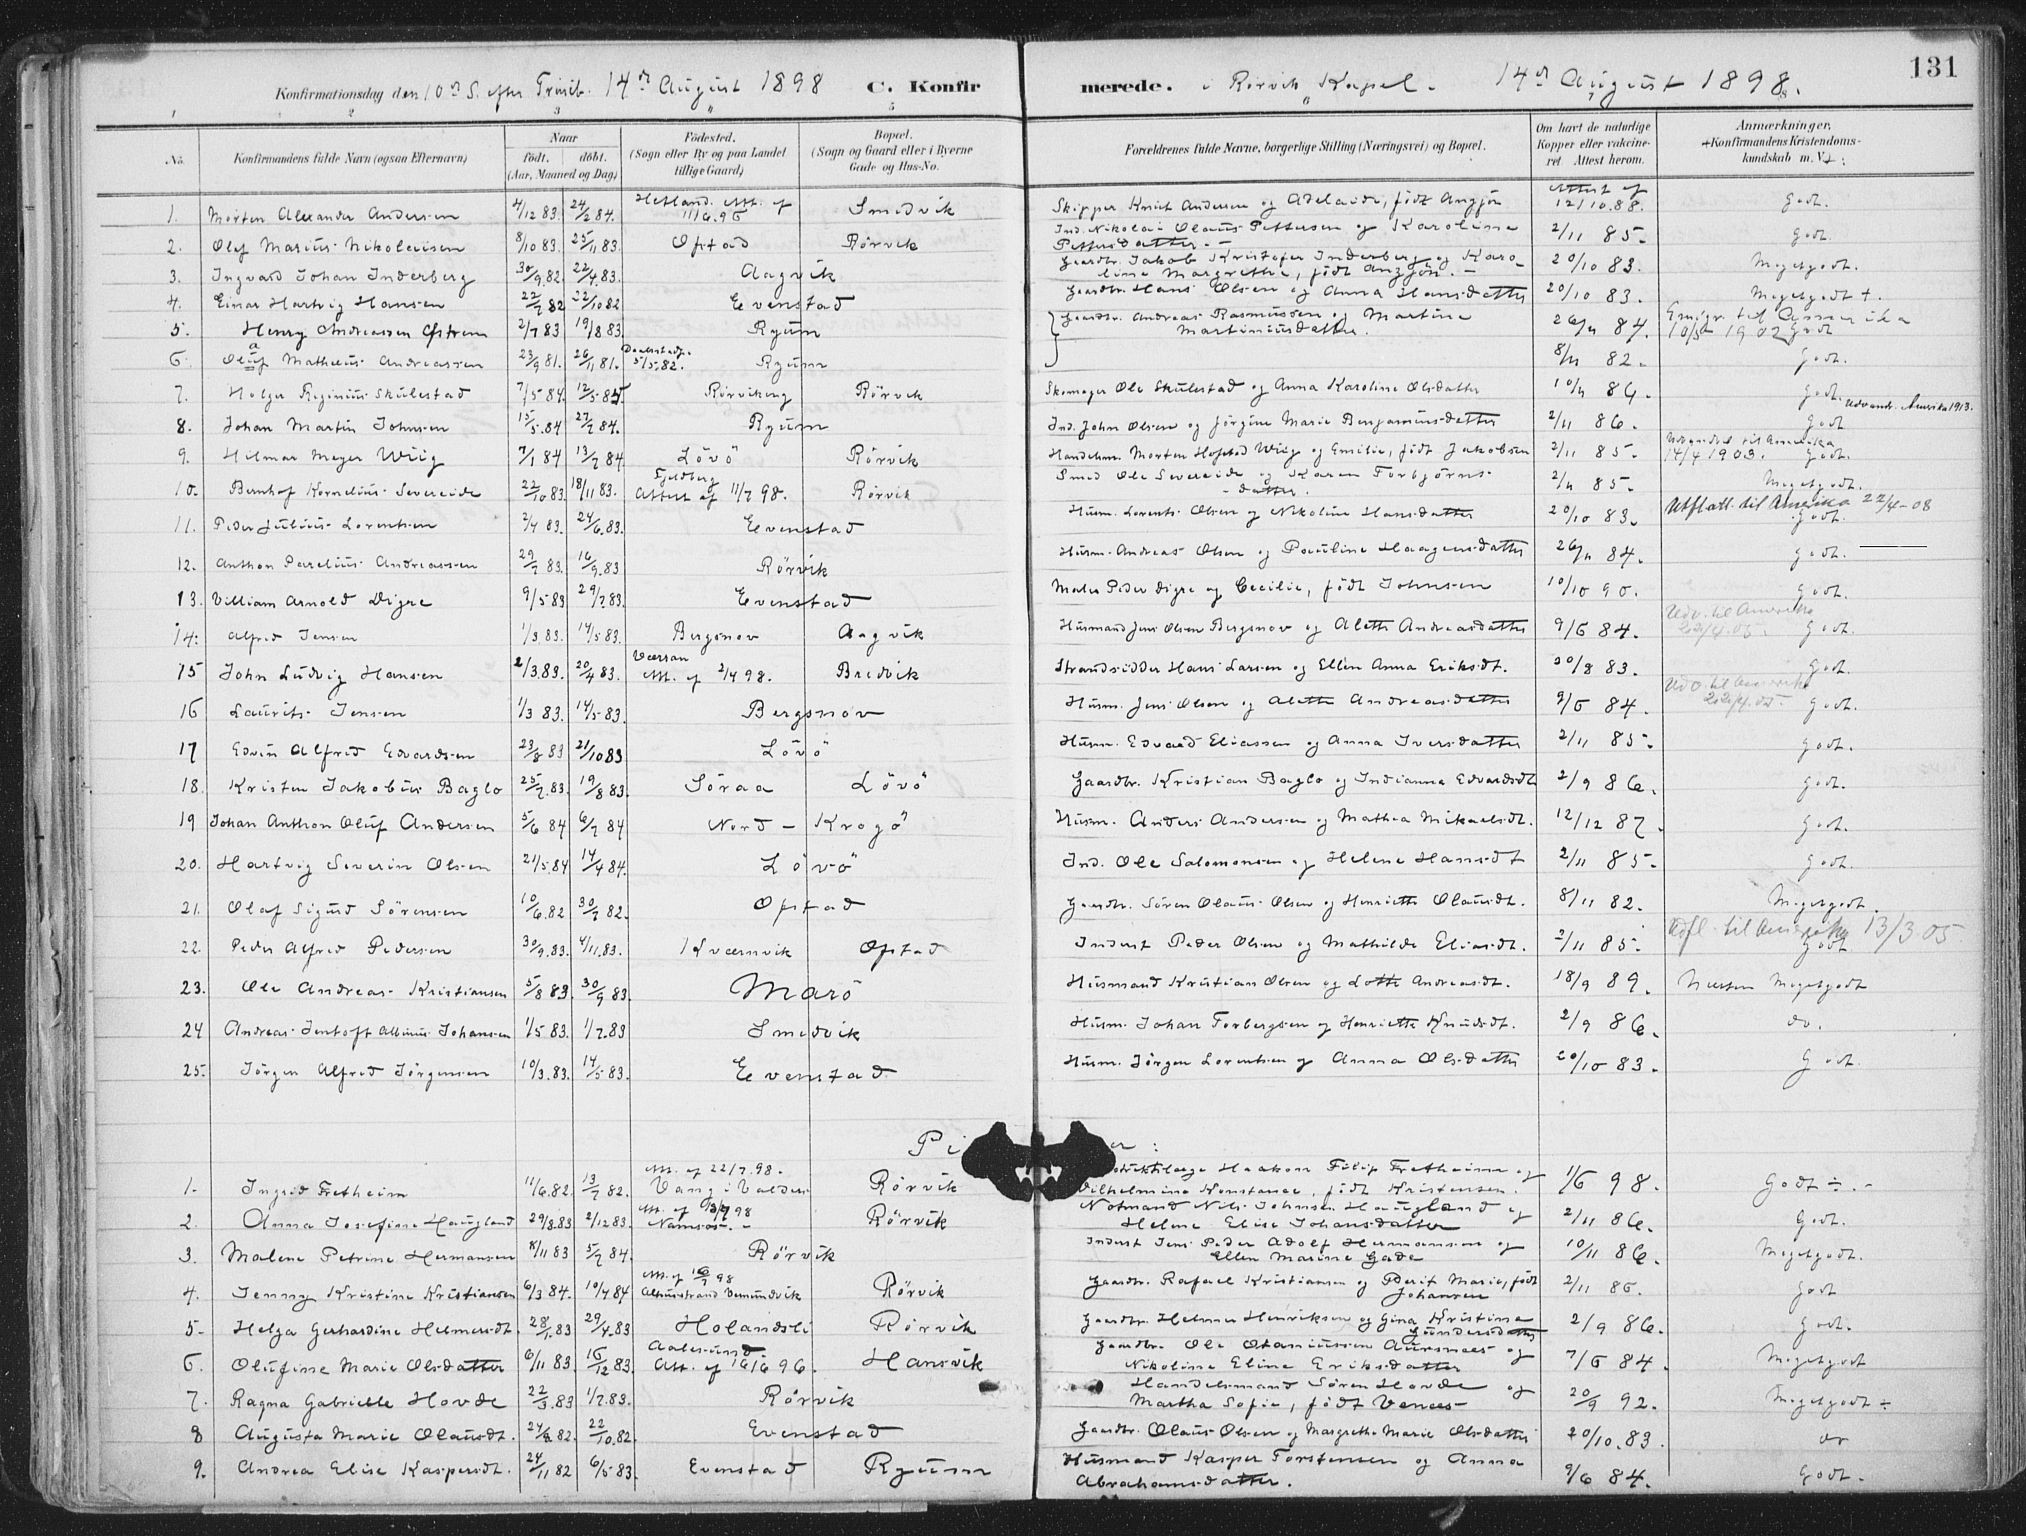 131
Konfirmationsdag den 10de S. efter Trinit. 14de August 1898 C. Konfirmerede. i Rörvik Kapel. 14de August 1898.
No. Konfirmandens fulde Navn (ogsaa Efternavn) Naar født. døbt. (Aar, Maaned og Dag) Fødested. (Sogn eller By og paa Landet tillige Gaard) Bopæl. (Sogn og Gaard eller i Byerne Gade og Hus-No. Forældrenes fulde Navne, borgerlige Stilling (Næringsvei) og Bopæl. Om havt de naturlige Kopper eller vakcineret. Attest herom. Anmærkninger. Konfirmandens Kristendomskundskab m. V.
1. Morten Alexander Andersen 4/12 83. 24/2 84. Hetland. Att. af 11/6.96 Smedvik Skipper Knut Andersen og Adelaide, födt Angjön Attest af 12/10.88. Godt.
2. Olaf Marius Nikolaisen 8/10 83. 25/11 83. Opstad Rörvik Ind. Nikolai Olaus Pettersen og Karoline Pettersdatter. 2/11 85. Godt.
3. Ingvard Johan Inderberg 30/9.82. 22/4.83. Aagvik Gaardbr. Jakob Kristofer Inderberg og Karoline Margrethe, födt Angjön. 20/10 83. Megetgodt.
4. Einar Hartvig Hansen 22/7 82 22/10 82 Evenstad Gaardbr. Hans Olsen og Anna Hansdatter 20/10 83. Megetgodt +.
5. Henry Andreassen 2/7 83 19/8 83 Ryum Gaardbr. Andreas Rasmussen og Martine Martiniusdatter. 26/11 84. Emigr. til Amerika 10/5 1902 Godt
6. Oluf Matheus Andreassen 23/9 81. 26/11 81. 5/5.82. Ryum 8/11 82. Godt.
7. Holger Reginius Skulestad 7/5 84. 12/5 84. Rörvikeng Rörvik Skomager Ole Skulestad og Anna Karoline Olsdatter 10/11 86. Godt. Udvandr. Amerika 1913.
8. Johan Martin Johnsen 15/5.84 27/7 84. Ryum Ind. John Olsen og Jörgine Marie Benjaminsdatter 2/11 86. Godt
9. Hilmar Meyer Wiig 7/1 84 13/7 84 Lövö Rörvik Handelsm. Morten Hofstad Wiig og Emilie, födt Jakobsen 2/11 85. Udvandret til Amerika 14/4 1903. Godt.
10. Bernhof Kornelius Severeide 22/10 83. 18/11 83. Fjeldberg Attest af 11/7 98. Rörvik Smed Ole Severeide og Karen Torbjörnsdatter. 2/11 85. Megetgodt.
11. Peder Julius Lorentsen 2/4 83. 24/6.83. Evenstad Husm. Lorents Olsen og Nikoline Hansdatter 20/10 83. Utflatt til Amerika 22/4-08 Godt.
12. Anthon Parelius Andreassen 29/7 83. 16/9.83 Rörvik Husm. Andreas Olsen og Pauline Haagensdatter 26/11 84. Godt.
13. Villiam Arnold Digre 9/5 83 29/7 83. Evenstad Maler Peder Digre og Cecilie, födt Johnsen 10/10 90. Godt.
14. Alfred Jensen 1/3 83. 14/5 83. Bergsnov Aagvik Husmand Jens Olsen Bergsnov og Alette Andreasdatter 9/6 84. Udv. til Amerika 22/4.05. Godt.
15 John Ludvig Hansen 2/3.83. 20/4 83. Værran Att. af 2/4 98. Bredvik Strandsidder Hans Larsen og Ellen Anna Eriksdt. 20/8 83. Godt.
16 Laurits Jensen 1/3 83. 14/5 83. Bergsnov Husm. Jens Olsen og Alette Andreasdatter 9/6 84. Udv. til Amerika 22/4.05. Godt.
17 Edvin Alfred Edvardsen 23/8 83 21/10 83 Lövö Husm. Edvard Eliassen og Anna Iversdatter 2/11 85. Godt.
18. Kristen Jakobus Baglo 25/7.83. 19/8 83. Söraa Lövö Gaardbr. Kristian Baglo og Indianna Edvardsdt 2/9 86. Godt.
19 Johan Anthon Oluf Andersen 5/6 84 6/7 84 Nord-Krogö Husm. Anders Andersen og Mathea Mikaelsdt. 12/12 87. Godt.
20. Hartvig Severin Olsen 21/5.84 14/4 84. Lövö Ind. Ole Salomonsen og Helene Hansdt 2/11 85. Godt.
21. Olaf Sigurd Sörensen 10/6.82 30/7 82. Opstad Gaardbr. Sören Olaus Olsen og Henriette Olausdt. 8/11 82. Megetgodt.
22. Peder Alfred Pedersen 30/9.83. 4/11.83. Kværnvik Opstad Inderst Peder Olsen og Mathilde Eliasdt. 2/11 85. Udfl. til Amerika 13/3 05 Godt
23. Ole Andreas Kristiansen 5/8 83. 30/9 83. Marö Husmand Kristian Olsen og Lotte Andreasdt. 18/9 89. Næsten Megetgodt
24 Andreas Jentoft Albinus Johansen 1/5 83. 1/7.83 Smedvik Husm. Johan Torbergsen og Henriette Knudsdt. 2/9 86. do.
25. Jörgen Alfred Jörgensen 10/3.83. 14/5 83. Evenstad Husm. Jörgen Lorentsen og Anna Olsdatter 20/10 83. Godt.
Pi er:
1. Ingrid Fretheim 11/6.82. 13/7 82. Att. af 22/7.98. Vang i Valders Rörvik Haakon Filip Fretheim og Vilhelmine Konstance, födt Kristensen. 1/6 98. Godt ÷.
2. Anna Josefine Haugland 29/8.83 2/12 83. Namsos. Rörvik Notmand Nils Johnsen Haugland og Helene Elise Johansdatter 2/11 86. Godt.
3. Malene Petrine Hermansen 8/11 83 5/7 84. Rörvik Inderst Jens Peder Adolf Hermansen og Ellen Marine Gade 10/11 86. Megetgodt.
4. Jenny Kristine Kristiansen 6/3 84. 10/4 84 Att. af 16/7 98 Vemundvik Rörvik Gaardbr. Rafael Kristiansen og Berit Marie, födt Johansen 2/11 86. Godt
5. Helga Gerhardine Helmersdt. 28/1.83 29/4.83 Holandsli Rörvik Gaardbr. Helmer Henriksen og Gina Kristine Gundersdatter 2/9 86. Godt.
6. Olufine Marie Olsdatter 6/11 83 16/12 83. Aalesund Att. af 16/6 96. Hansvik Gaardbr. Ole Otaniussen Aursnes og Nikoline Eline Eriksdatter 7/6 84. Megetgodt
7. Ragna Gabrielle Hovde 22/3.83 1/7.83. Rörvik Handelsmand Sören Hovde og Martha Sofie, födt Venees 20/9 92. Megetgodt ÷
8 Augusta Marie Olausdt. 24/8 82. 22/10.82. Evenstad Gaardbr. Olaus Olsen og Margrethe Marie Olsdatter 20/10.83. do
9. Andrea Elise Kaspersdt. 24/11 82 6/5 83. Evenstad Ryum Husmand Kasper Torstensen og Anna Abrahamsdatter. 9/6 84. Godt.